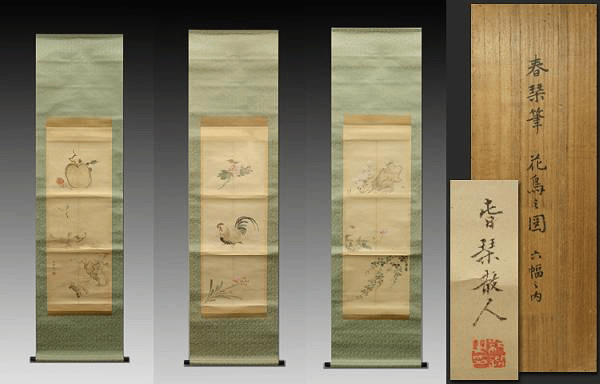 春琴筆 花鳥之図 六幅之内
春琴散人